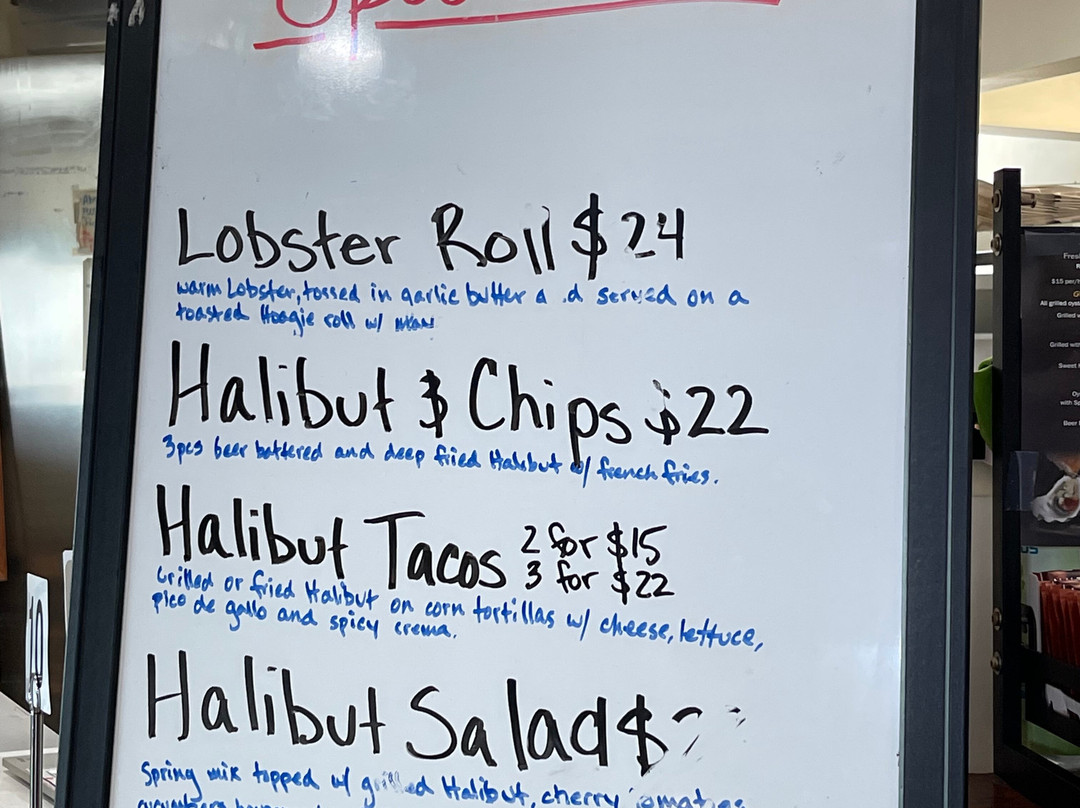 Lobster Roll $24
warm Lobster, tossed in garlic butter a d served on a
toasted Hoagie roll w/
Halibut & Chips $22
3pcs beer battered and deep fried Halibut w/ french fries.
Halibut Tacos 2 for $15
3 for $22
Grilled or fried Halibut on corn tortillas w/ cheese, lettuce,
pico de gallo and spicy crema.
Halibut Salad $
Spring mix topped w/ grilled Halibut, cherry omatoes
10
$15 per/
All grilled
Grilled
Grilled
Sweet
with
Beer